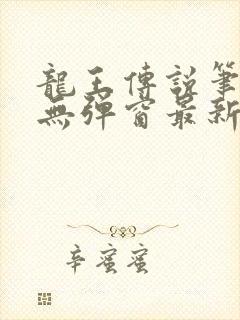 龍王傳說筆
無彈窗最新
辛蜜蜜